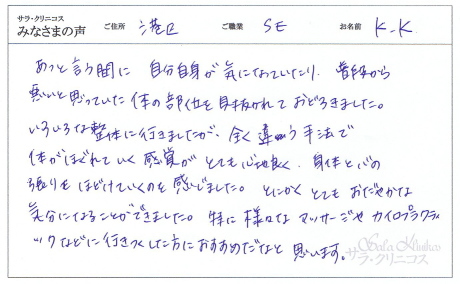 サラ・クリニコス
みなさまの声 ご住所 港区 ご職業 SE お名前 K.K
あっと言う間に 自分自身が 気になっていたり、普段から
悪いと思っていた 体の部位を 見抜かれて おどろきました。
いろいろな 整体に 行きましたが、全く 違う 手法で
体がほぐれていく 感覚が とても 心地良く、身体と心の
張りを ほどけていくのを 感じました。とにかく とても おだやかな
気分になることができました。特に 様々な マッサージや カイロプラクティ
ックなどに 行きつくした方に おすすめだなと 思います。
Sala Klinikos
サラ・クリニコス